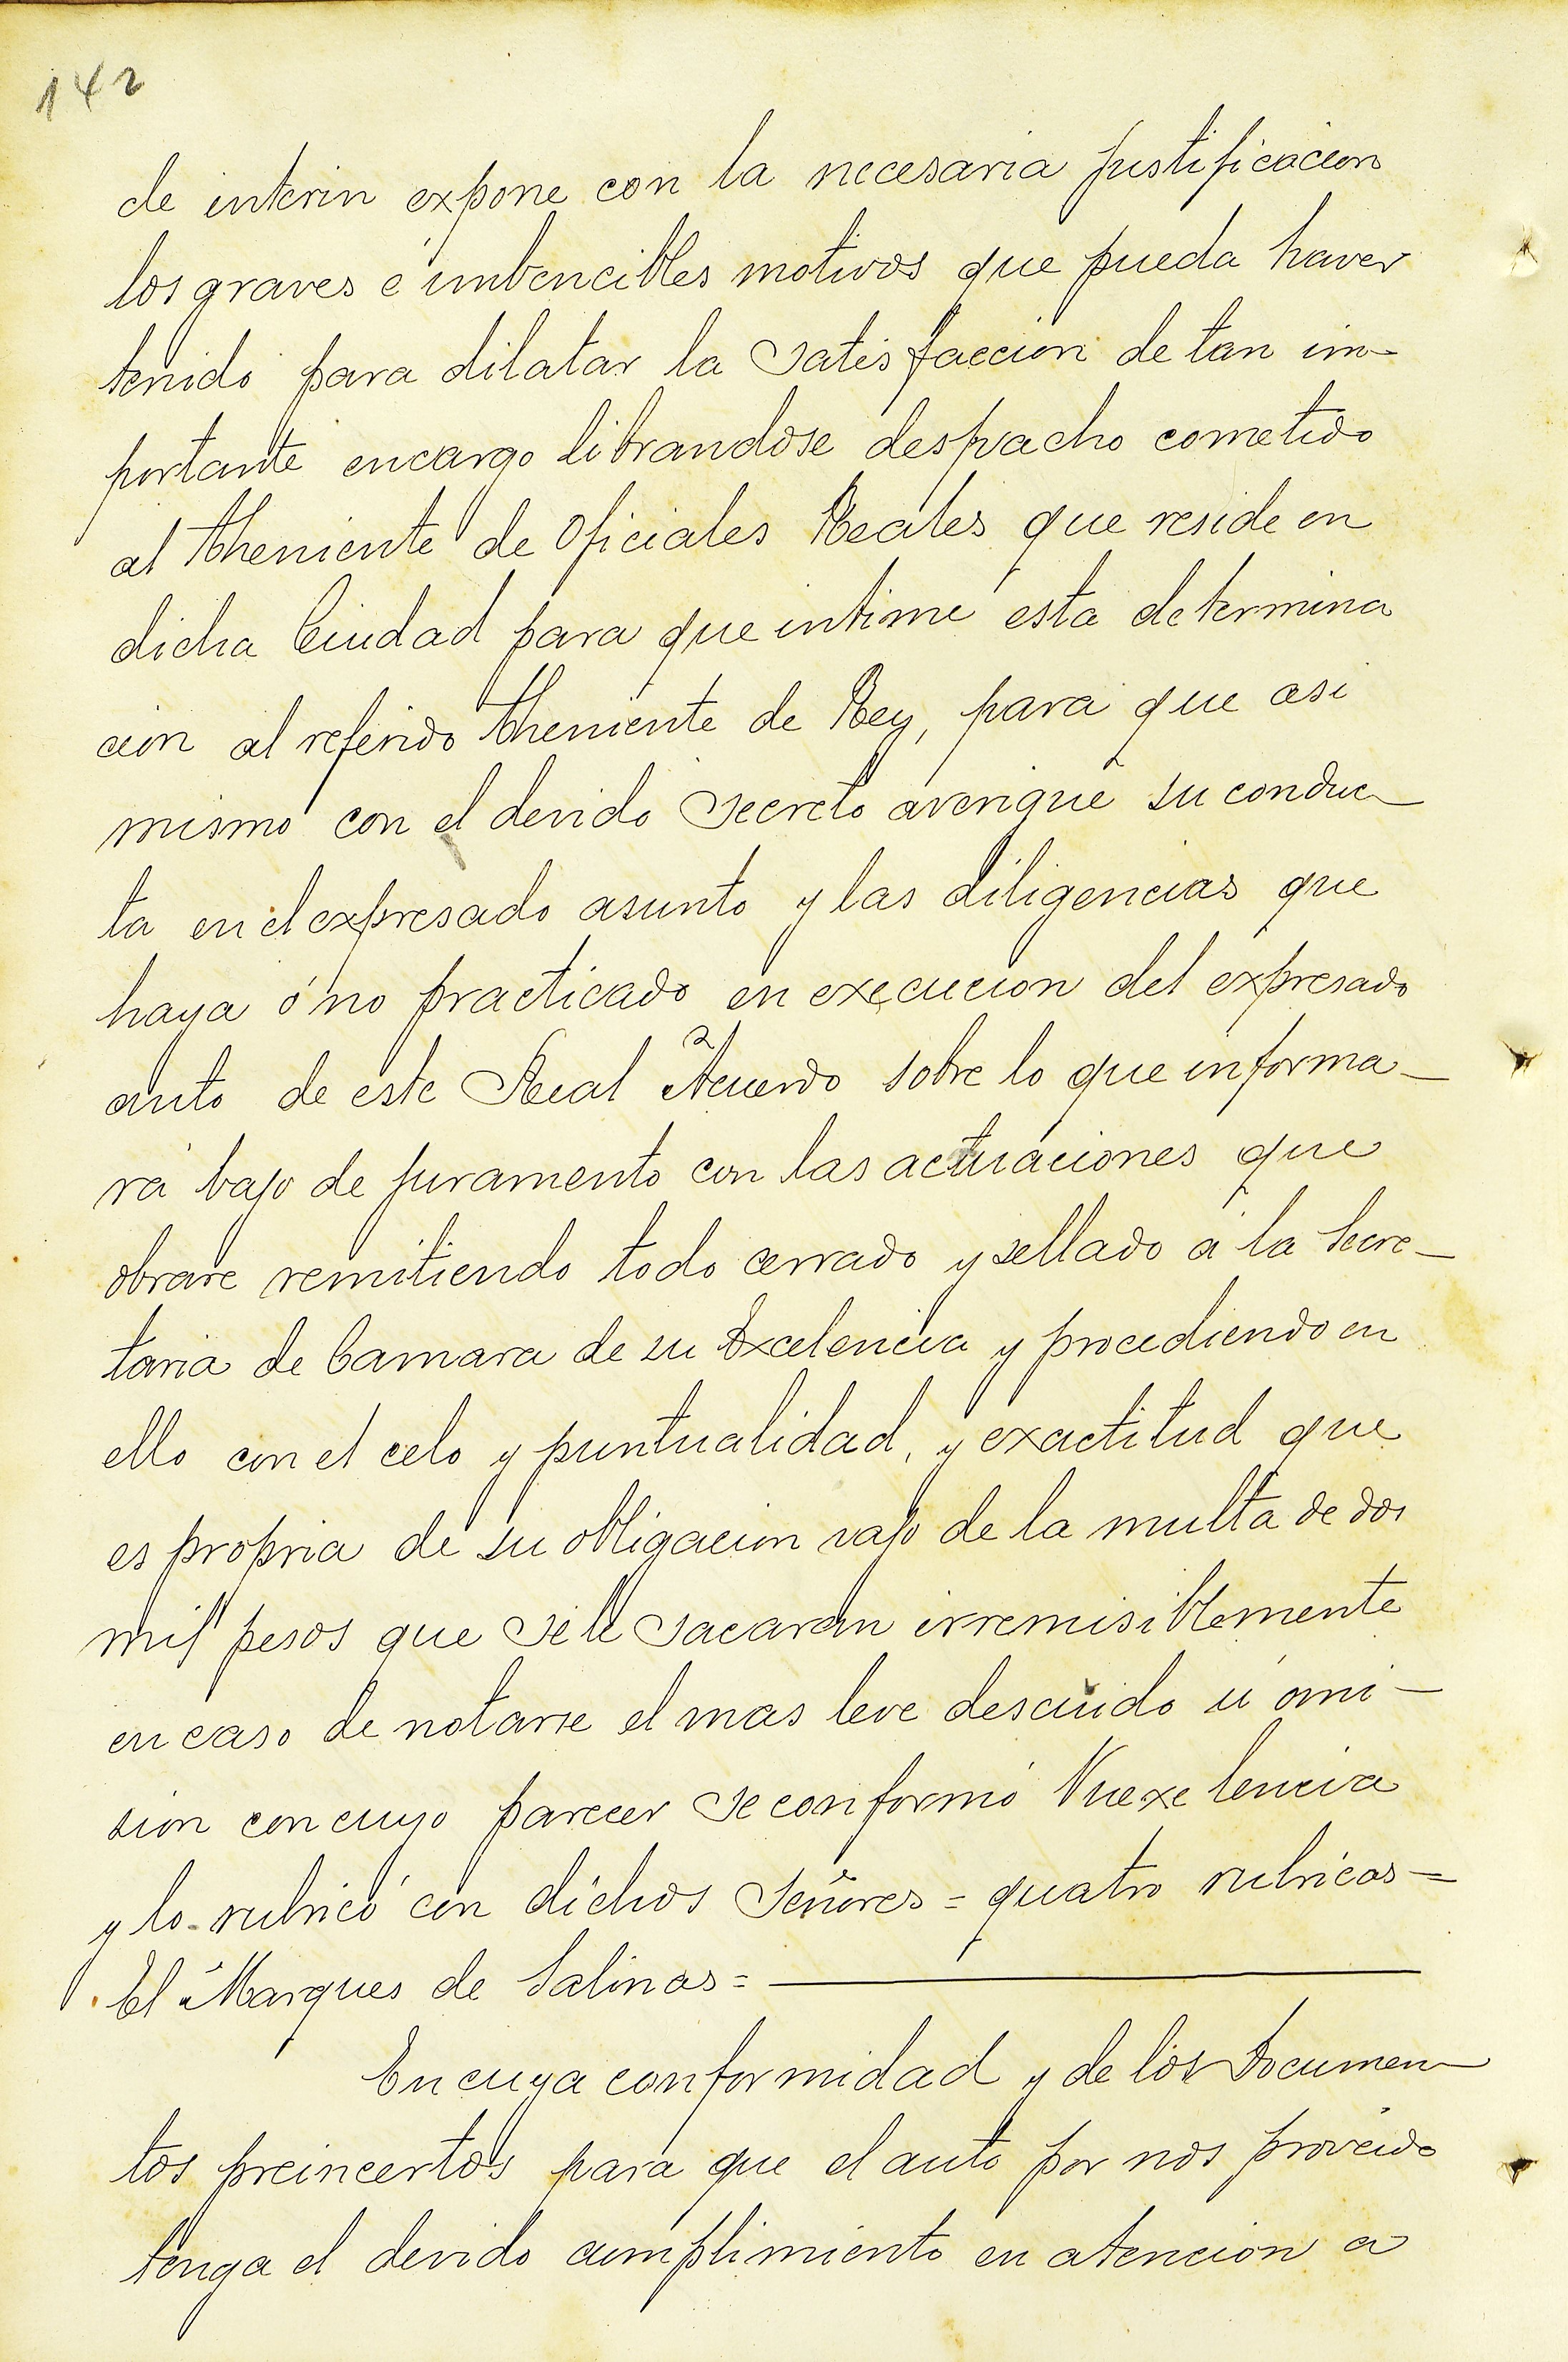 142
de interin expone con la necesaria justificacion
los graves é imbencibles motivos que pueda haver
tenido para dilatar la satisfaccion de tan im-
portante encargo librandose despacho cometido
al theniente de Oficiales Reales que reside en
dicha Ciudad para que intime esta determina
cion al referido theniente de Rey, para que asi
mismo con el devido secreto averigue su conduc-
ta en el expresado asunto y las diligencias que
haya ó no practicado en execucion del expresado
auto de este Real Acuerdo sobre lo que informa-
rá bajo de juramento con las actuaciones que
obrare remitiendo todo cerrado y sellado á la Secre-
taria de Camara de su Excelencia y procediendo en
ello con el celo y puntualidad, y exactitud que
es propria de su obligacion vajo de la multa de dos
mil pesos que se le sacaran irremisiblemente
en caso de notarse el mas leve descuido ú omi-
sion con cuyo parecer se conformó Vuexelencia
y lo rubricó con dichos Señores = quatro rubricas =
El Marques de Salinas =
En cuya conformidad y de los Documen-
tos preincertos para que el auto por nos proveido
tenga el devido cumplimiento en atencion a